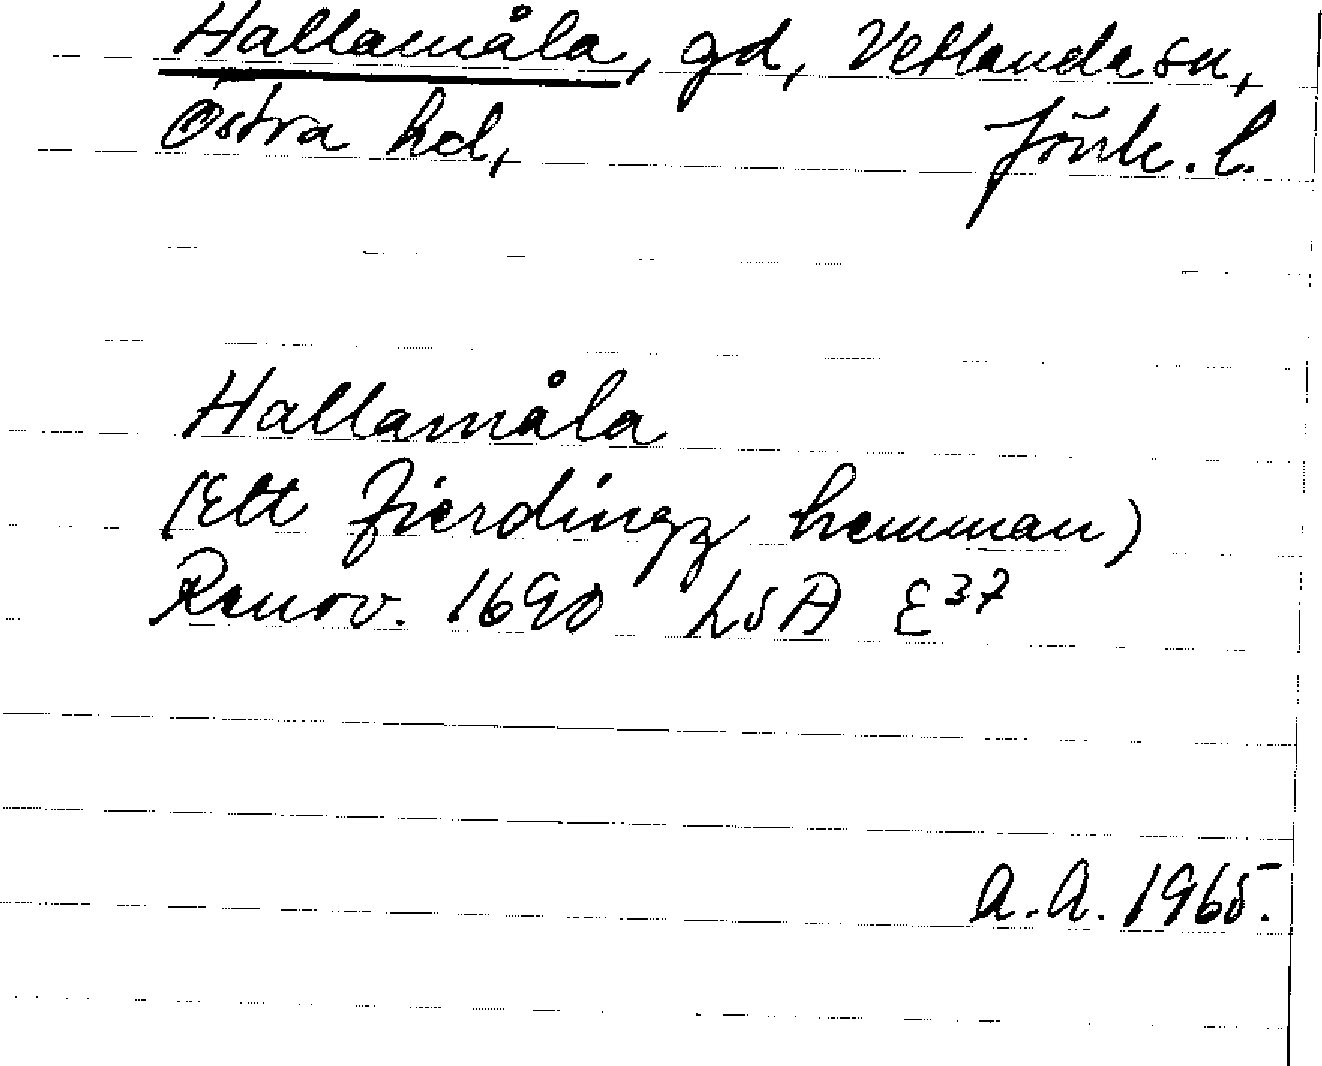 Hallamåla, gd, Vetlanda sn,
Östra hd, Jönk. l.
Hallamåla
(Ett fierdingz hemman)
Renov. 1690 LSA E 37
A.A. 1965.